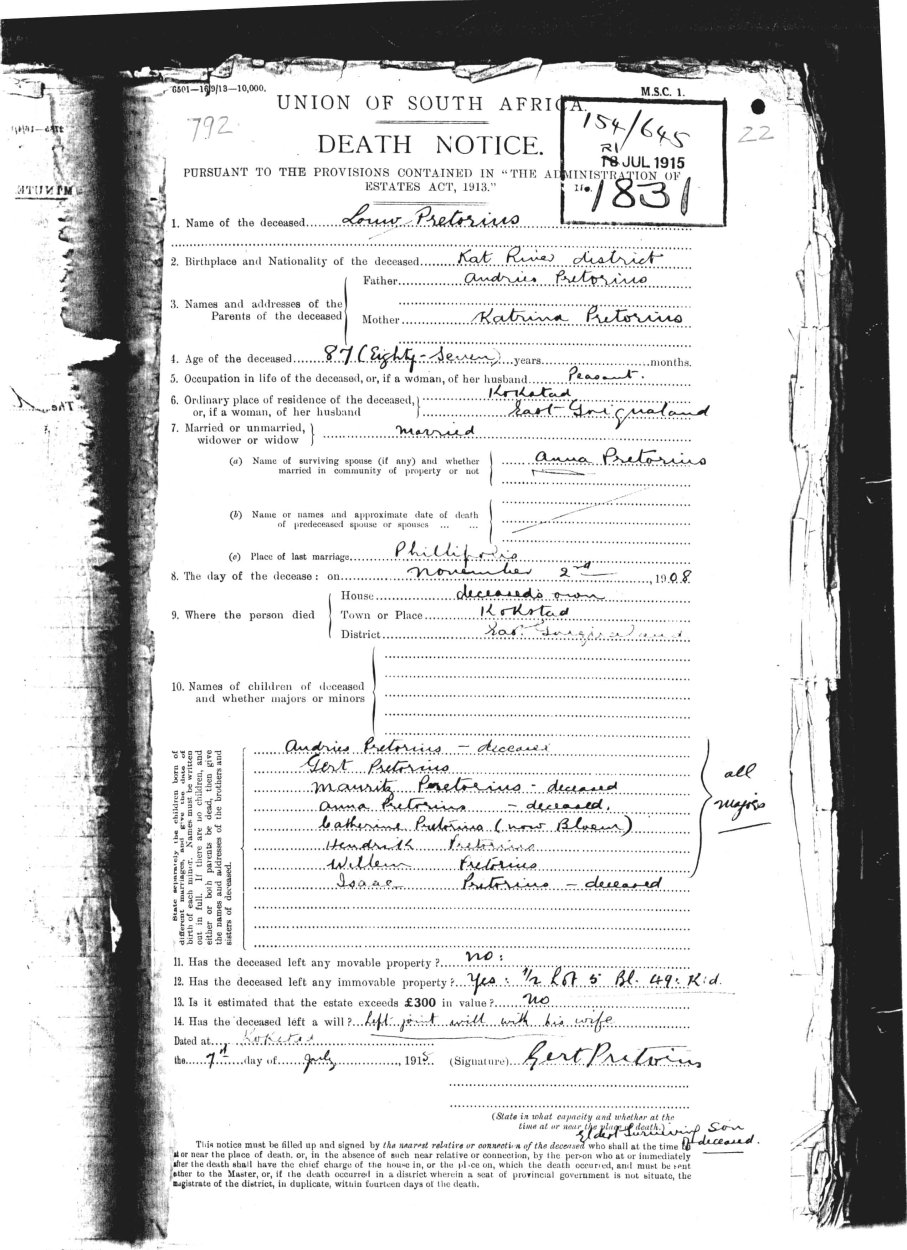 6501—16/9/13—10,000.
M.S.C. 1.
UNION OF SOUTH AFRICA.
792
154/645
22
DEATH NOTICE.
R1
18 JUL 1915
PURSUANT TO THE PROVISIONS CONTAINED IN “THE ADMINISTRATION OF
ESTATES ACT, 1913.”
No. 1831
1. Name of the deceased Louw Pretorius
2. Birthplace and Nationality of the deceased Kat River district
3. Names and addresses of the Parents of the deceased
Father Andries Pretorius
Mother Katrina Pretorius
4. Age of the deceased 87 (Eighty-Seven) years months.
5. Occupation in life of the deceased, or, if a woman, of her husband Peasant.
6. Ordinary place of residence of the deceased, Kokstad
or, if a woman, of her husband East Griqualand
7. Married or unmarried,
widower or widow married
(a) Name of surviving spouse (if any) and whether Anna Pretorius
married in community of property or not
(b) Name or names and approximate date of death
of predeceased spouse or spouses ... ...
(c) Place of last marriage Phillipolis
8. The day of the decease: on November 2nd, 1908
9. Where the person died
House deceased's own
Town or Place Kokstad
District East Griqualand
10. Names of children of deceased
and whether majors or minors
State separately the children born of
different marriages, and give the date of
birth of each minor. Names must be written
out in full. If there are no children, and
either or both parents be dead, then give
the names and addresses of the brothers and
sisters of deceased.
Andries Pretorius - deceased
Gert Pretorius
Mauritz Peretorius - deceased
Anna Pretorius - deceased.
Catherine Pretorius (now Bloem)
Hendrik Pretorius
Willem Pretorius
Isaac Pretorius - deceased
all
majors
11. Has the deceased left any movable property? No:
12. Has the deceased left any immovable property? Yes: 1/2 Lot 5 Bl. 49: K:d.
13. Is it estimated that the estate exceeds £300 in value? No
14. Has the deceased left a will? Left joint will with his wife
Dated at Kokstad
the 7th day of July, 1915. (Signature) Gert Pretorius
(State in what capacity and whether at the
time at or near the place of death.)
Eldest Surviving Son
of deceased.
This notice must be filled up and signed by the nearest relative or connection of the deceased who shall at the time be
at or near the place of death, or, in the absence of such near relative or connection, by the person who at or immediately
after the death shall have the chief charge of the house in, or the place on, which the death occurred, and must be sent
either to the Master, or, if the death occurred in a district wherein a seat of provincial government is not situate, the
magistrate of the district, in duplicate, within fourteen days of the death.